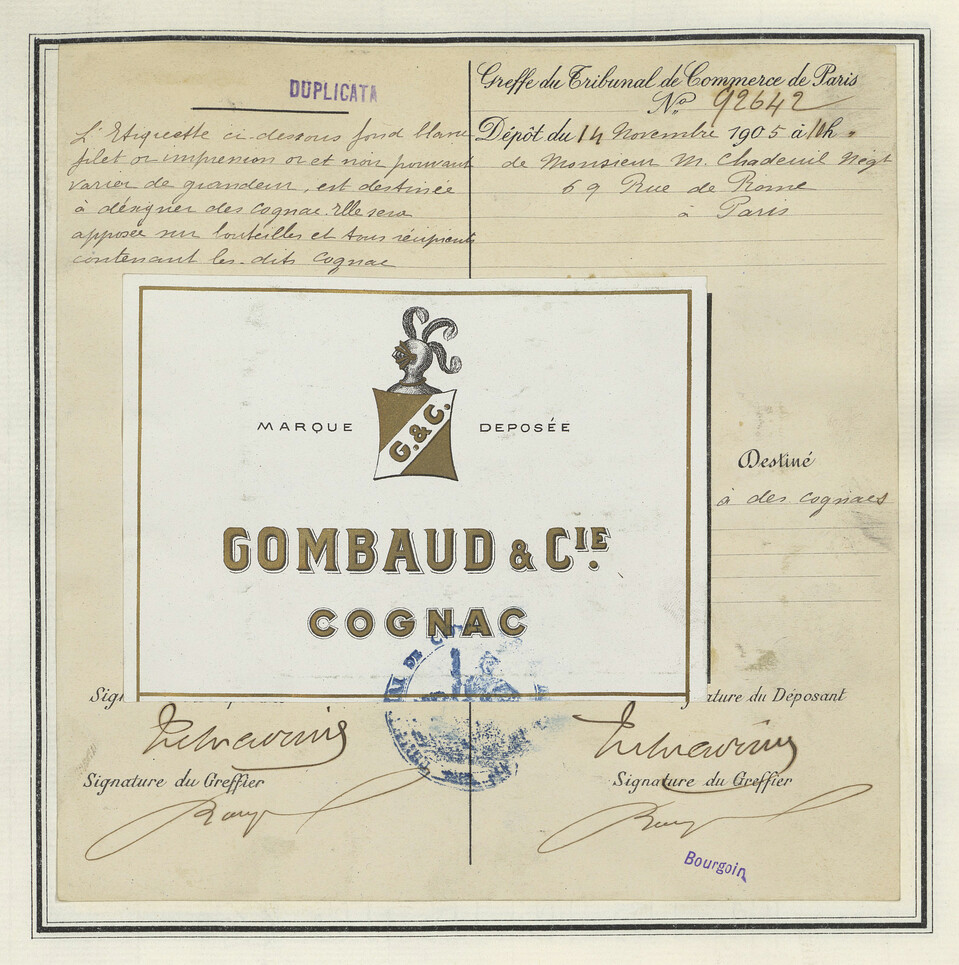 DUPLICATA
L'Etiquette ci-dessous fond blanc
filet or impression or et noir pouvant
varier de grandeur, est destinée
à désigner des cognac. Elle sera
apposée sur bouteilles et tous récipients
contenant les dits Cognac
Greffe du Tribunal de Commerce de Paris
No 92642
Dépôt du 14 Novembre 1905 à 10h
de Monsieur M. Chadeuil Négt
69 Rue de Rome
à Paris
MARQUE DEPOSÉE
G.&C.
GOMBAUD & CIE.
COGNAC
Destiné
à des cognacs
Sig
ature du Déposant
Signature du Greffier
Signature du Greffier
Bourgoin